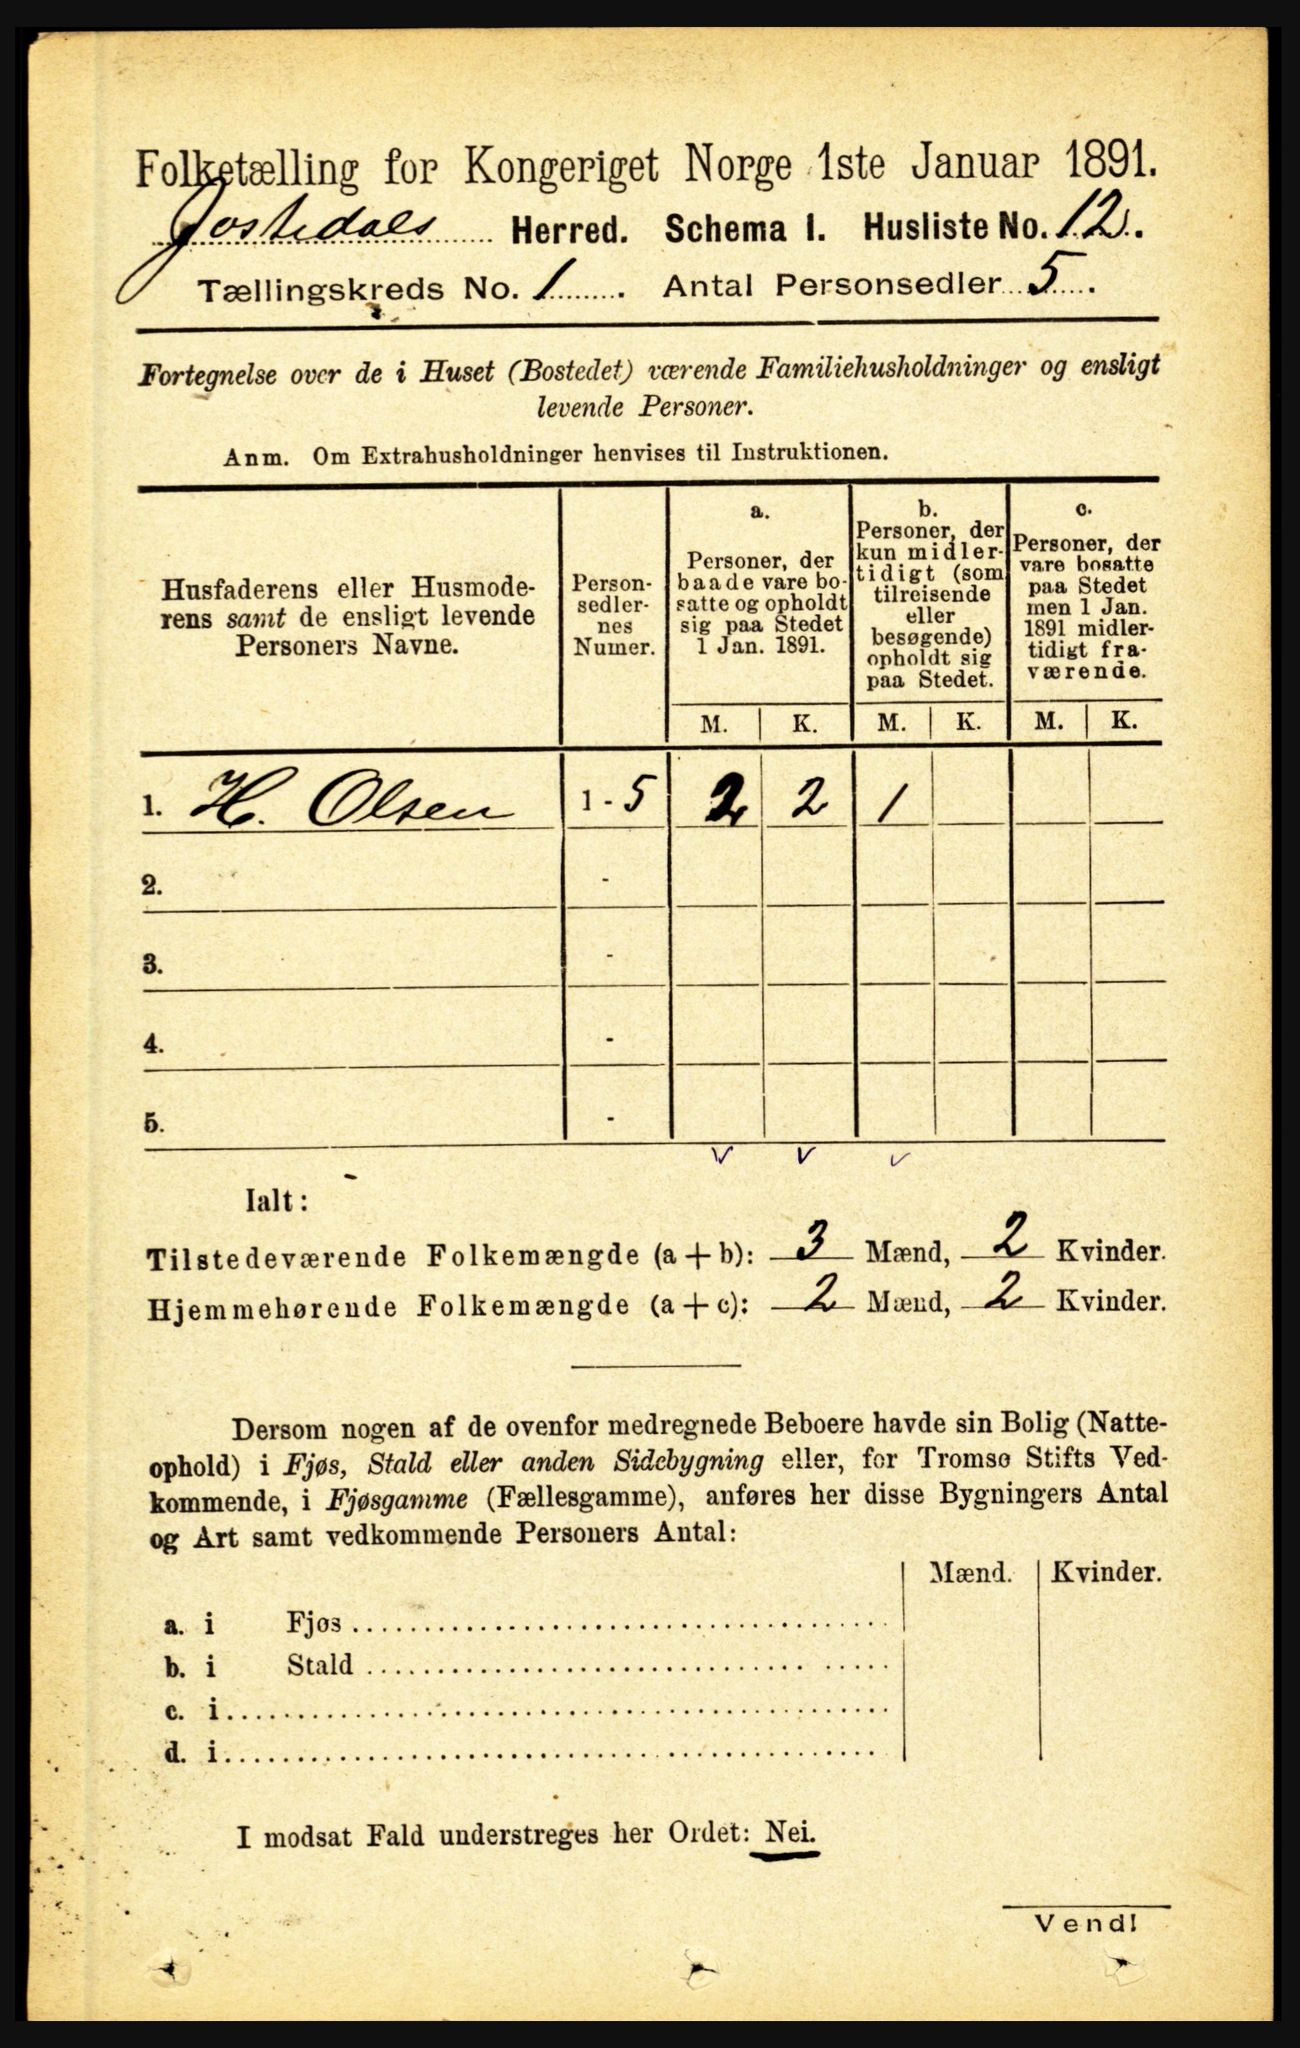 Folketælling for Kongeriget Norge 1ste Januar 1891.
Jostedals Herred. Schema 1. Husliste No. 12.
Tællingskreds No. 1. Antal Personsedler 5.
Fortegnelse over de i Huset (Bostedet) værende Familiehusholdninger og ensligt
levende Personer.
Anm. Om Extrahusholdninger henvises til Instruktionen.
Husfaderens eller Husmode-
rens samt de ensligt levende
Personers Navne.
Person-
sedler-
nes
Numer.
a.
Personer, der
baade vare bo-
satte og opholdt
sig paa Stedet
1 Jan. 1891.
b.
Personer, der
kun midler-
tidigt (som
tilreisende
eller
besøgende)
opholdt sig
paa Stedet.
c.
Personer, der
vare bosatte
paa Stedet
men 1 Jan.
1891 midler-
tidigt fra-
værende.
M. K. M. K. M. K.
1. H. Olsen 1 - 5 2 2 1
2. -
3. -
4. -
5. -
Ialt:
Tilstedeværende Folkemængde (a + b): 3 Mænd, 2 Kvinder.
Hjemmehørende Folkemængde (a + c): 2 Mænd, 2 Kvinder.
Dersom nogen af de ovenfor medregnede Beboere havde sin Bolig (Natte-
ophold) i Fjøs, Stald eller anden Sidebygning eller, for Tromsø Stifts Ved-
kommende, i Fjøsgamme (Fællesgamme), anføres her disse Bygningers Antal
og Art samt vedkommende Personers Antal:
Mænd. Kvinder.
a. i Fjøs
b. i Stald
c. i
d. i
I modsat Fald understreges her Ordet: Nei.
Vend!